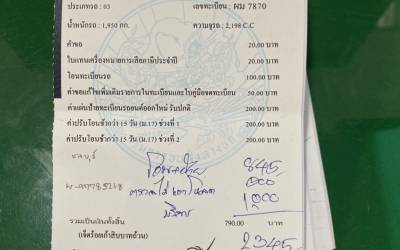 ประเภทรถ : 03 เลขทะเบียน : ผม 7870
น้ำหนักรถ : 1,950 กก. ความจุรถ : 2,198 C.C
ค่าขอ 20.00 บาท
ใบแทนเครื่องหมายการเสียภาษีประจำปี 20.00 บาท
โอนทะเบียนรถ 100.00 บาท
ค่าขอแก้ไขเพิ่มเติมรายการในทะเบียนและใบคู่มือจดทะเบียน 50.00 บาท
ค่าแผ่นป้ายทะเบียนรถยนต์ออกใหม่ รับปกติ 200.00 บาท
ค่าปรับโอนช้ากว่า 15 วัน (ม.17) ช่วงที่ 1 200.00 บาท
ค่าปรับโอนช้ากว่า 15 วัน (ม.17) ช่วงที่ 2 200.00 บาท
845
1000
รวมเป็นเงินทั้งสิ้น 790.00 บาท
(เจ็ดร้อยเก้าสิบบาทถ้วน) 2345